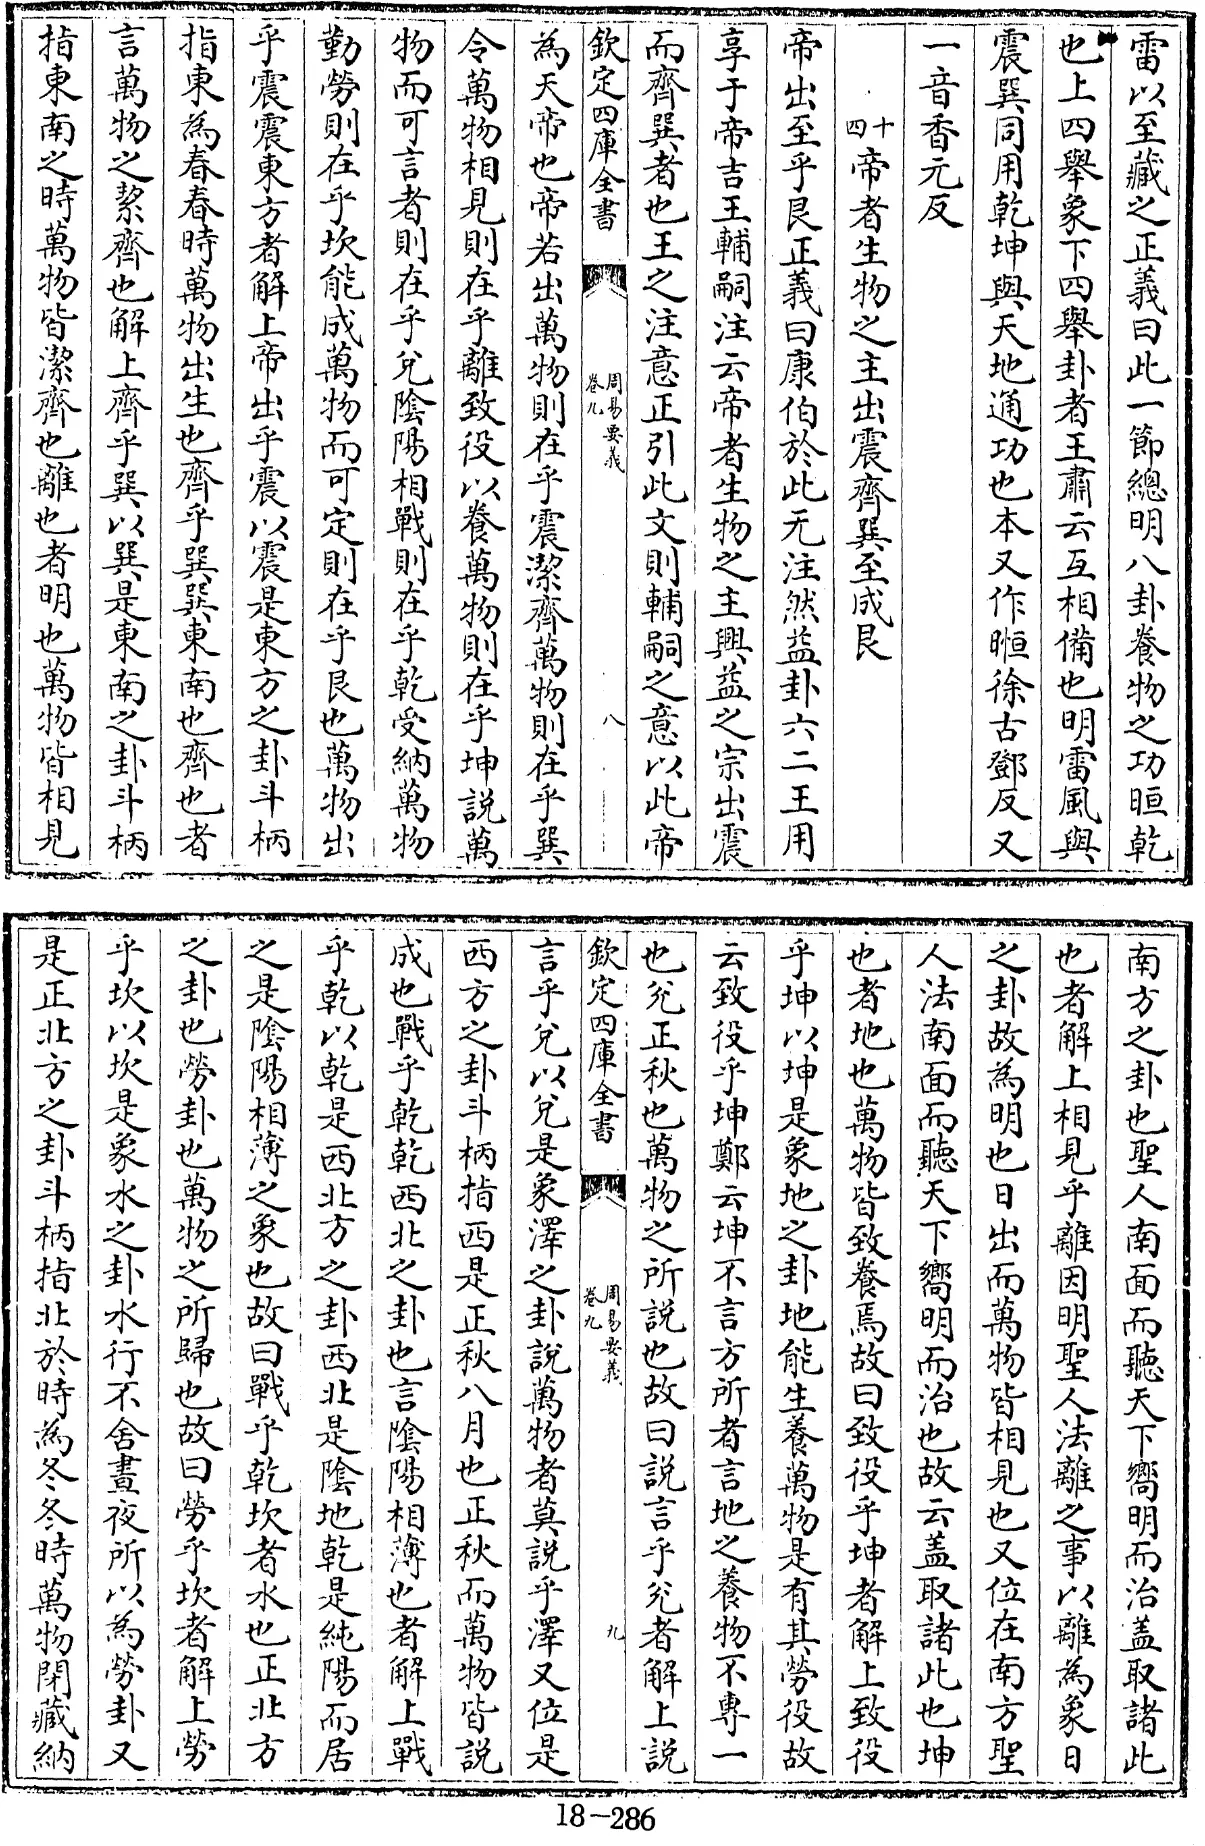 雷以至藏之正義曰此一節總明八卦養物之功晅乾
也上四舉象下四舉卦者王肅云互相備也明雷風與
震巽同用乾坤與天地通功也本又作晅徐古鄧反又
一音香元反
十四帝者生物之主出震齊巽至成艮
帝出至乎艮正義曰康伯於此无注然益卦六二王用
享于帝吉王輔嗣注云帝者生物之主興益之宗出震
而齊巽者也王之注意正引此文則輔嗣之意以此帝
欽定四庫全書
周易要義
卷九
八
為天帝也帝若出萬物則在乎震潔齊萬物則在乎巽
令萬物相見則在乎離致役以養萬物則在乎坤說萬
物而可言者則在乎兌陰陽相戰則在乎乾受納萬物
勤勞則在乎坎能成萬物而可定則在乎艮也萬物出
乎震震東方者解上帝出乎震以震是東方之卦斗柄
指東為春春時萬物出生也齊乎巽巽東南也齊也者
言萬物之絜齊也解上齊乎巽以巽是東南之卦斗柄
指東南之時萬物皆潔齊也離也者明也萬物皆相見
南方之卦也聖人南面而聽天下嚮明而治蓋取諸此
也者解上相見乎離因明聖人法離之事以離為象日
之卦故為明也日出而萬物皆相見也又位在南方聖
人法南面而聽天下嚮明而治也故云蓋取諸此也坤
也者地也萬物皆致養焉故曰致役乎坤者解上致役
乎坤以坤是象地之卦地能生養萬物是有其勞役故
云致役乎坤鄭云坤不言方所者言地之養物不專一
也兌正秋也萬物之所說也故曰說言乎兌者解上說
欽定四庫全書
周易要義
卷九
九
言乎兌以兌是象澤之卦說萬物者莫說乎澤又位是
西方之卦斗柄指西是正秋八月也正秋而萬物皆說
成也戰乎乾乾西北之卦也言陰陽相薄也者解上戰
乎乾以乾是西北方之卦西北是陰地乾是純陽而居
之是陰陽相薄之象也故曰戰乎乾坎者水也正北方
之卦也勞卦也萬物之所歸也故曰勞乎坎者解上勞
乎坎以坎是象水之卦水行不舍晝夜所以為勞卦又
是正北方之卦斗柄指北於時為冬冬時萬物閉藏納
18-286